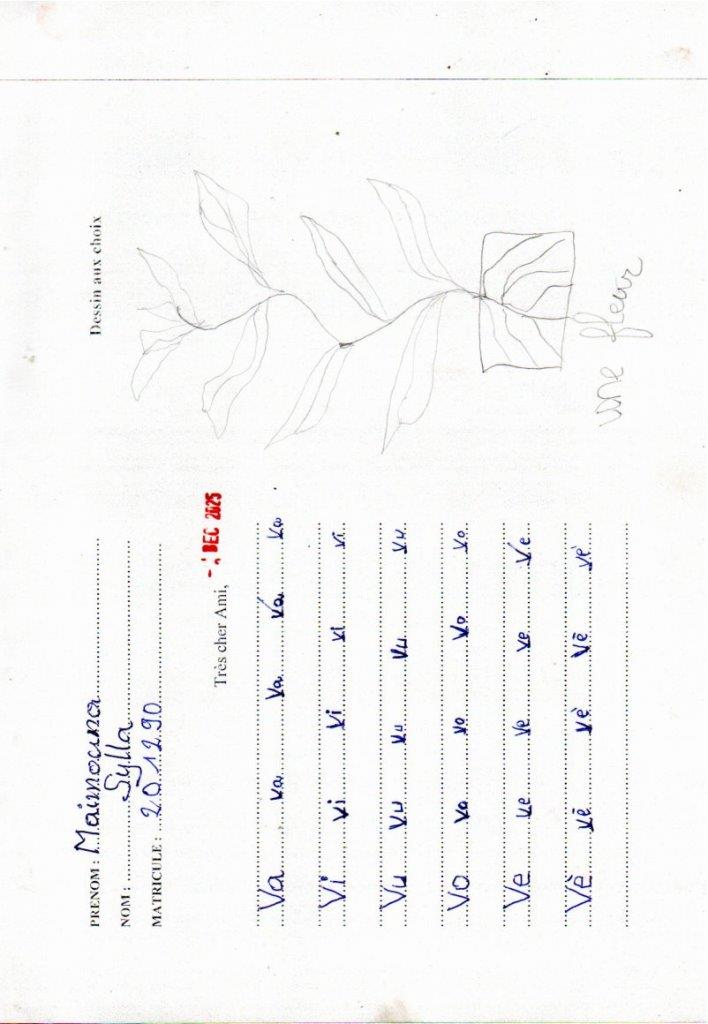 PRENOM : Maimouna
NOM : Sylla
MATRICULE : 201290
Très cher Ami,
DEC 2025
Va va va va va
Vi vi vi vi vi
Vu vu vu vu vu
Vo vo vo vo vo
Ve ve ve ve ve
Vè vè vè vè vè
Dessin aux choix
une fleur